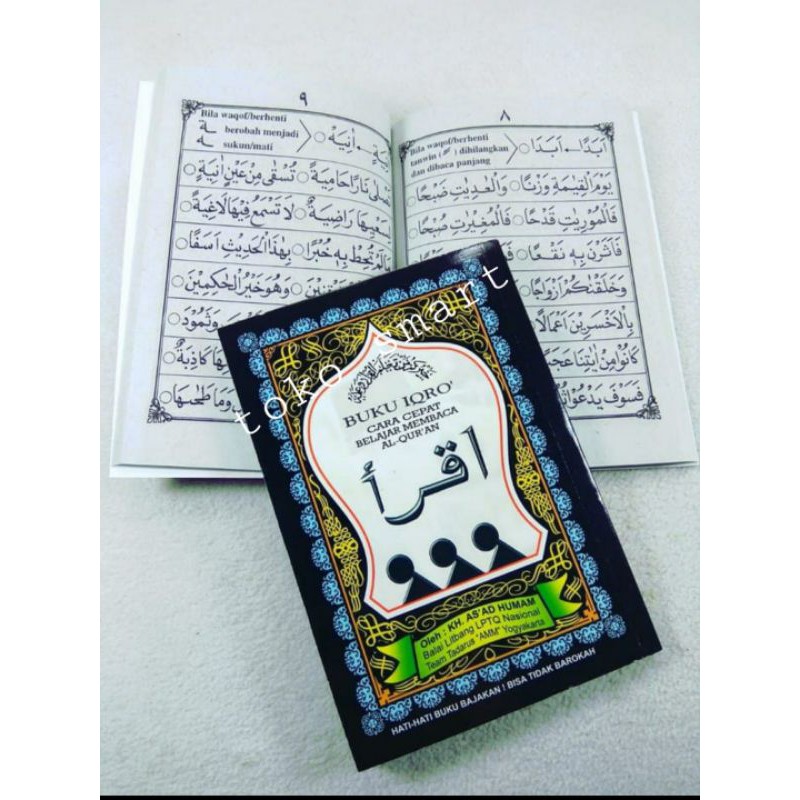 ٩
Bila waqof/berhenti
berobah menjadi
sukun/mati
ةً
ـهْ
اٰنِيَهْ
تُسْقٰى مِنْ عَيْنٍ اٰنِيَةٍ
نَارًا حَامِيَةً
لَا تَسْمَعُ فِيْهَا لَاغِيَةً
رَاضِيَةٌ
بِهٰذَا الْحَدِيْثِ اَسَفًا
تُحِطْ بِهٖ خُبْرًا
وَهُوَ خَيْرُ الْحٰكِمِيْنَ
وَثَمُوْدَ
كَاذِبَةٌ
وَمَا طَحٰىهَا
٨
Bila waqof/berhenti
tanwin ( ـً ) dihilangkan
dan dibaca panjang
اَبَدًا ← اَبَدَا
يَوْمَ الْقِيٰمَةِ وَزْنًا
وَالْعٰدِيٰتِ ضَبْحًا
فَالْمُوْرِيٰتِ قَدْحًا
فَالْمُغِيْرٰتِ صُبْحًا
فَاَثَرْنَ بِهٖ نَقْعًا
وَخَلَقْنٰكُمْ اَزْوَاجًا
بِالْاَخْسَرِيْنَ اَعْمَالًا
كَانُوْا مِنْ اٰيٰتِنَا عَجَبًا
فَسَوْفَ يَدْعُوْا
toko smart
BUKU IQRO'
CARA CEPAT
BELAJAR MEMBACA
AL-QUR'AN
اقرأ
Oleh : KH. AS'AD HUMAM
Balai Litbang LPTQ Nasional
Team Tadarus "AMM" Yogyakarta
HATI-HATI BUKU BAJAKAN ! BISA TIDAK BAROKAH